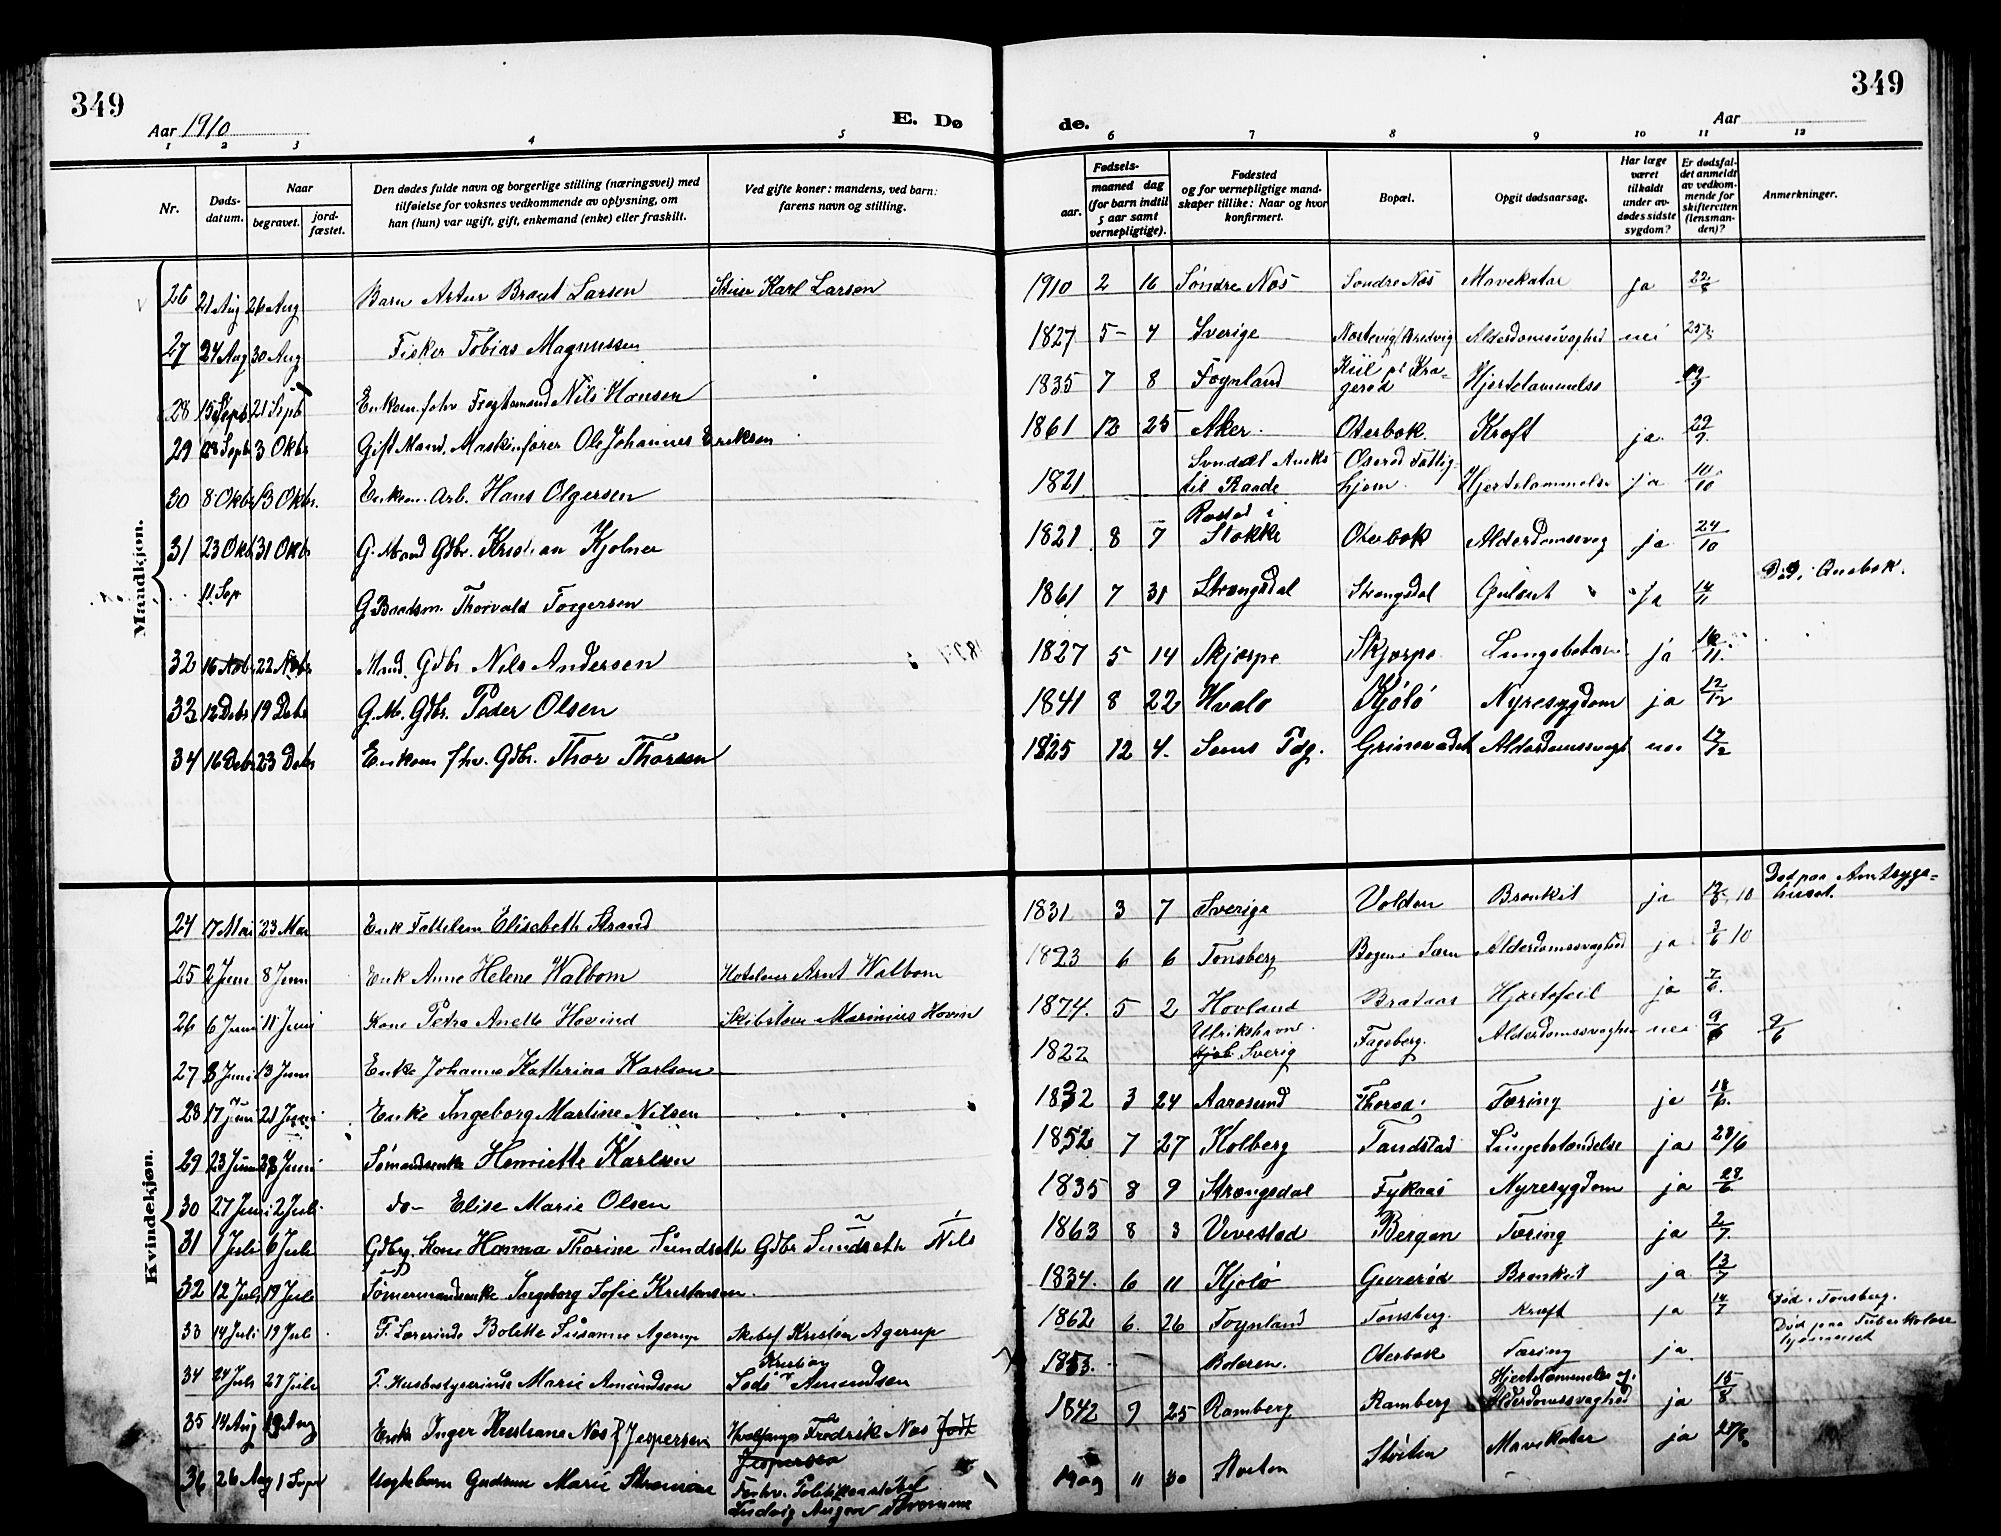 349
349
Aar 1910
E. Dø
de.
Aar
1 2 3 4 5 6 7 8 9 10 11 12
Nr.
Døds-
datum.
Naar
begravet.
jord-
fæstet.
Den dødes fulde navn og borgerlige stilling (næringsvei) med
tilføielse for voksnes vedkommende av oplysning, om
han (hun) var ugift, gift, enkemand (enke) eller fraskilt.
Ved gifte koner: mandens, ved barn:
farens navn og stilling.
Fødsels-
aar.
maaned dag
(for barn indtil
5 aar samt
vernepligtige).
Fødested
og for vernepligtige mand-
skaper tillike: Naar og hvor
konfirmert.
Bopæl.
Opgit dødsaarsag.
Har læge
været
tilkaldt
under av-
dødes sidste
sygdom?
Er dødsfal-
det anmeldt
av vedkom-
mende for
skifteretten
(lensman-
den)?
Anmerkninger.
Mandkjøn.
26 21 Aug 26 Aug Barn Artur Larsen Karl Larsen 1910 2 16 Søndre Nøs Søndre Nøs Mavekatar ja 22/8
27 24 Aug 30 Aug Fisker Tobias Magnussen 1827 5 - 7 Sverige Alderdomssvaghed nei 25/8
28 15 Sept 21 Sept Enkem. forhv. Nils Hansen 1835 7 8 Føynland Hjertelammelse
29 28 Sept 3 Okbr Gift Mand. Maskinfører Ole Johannes Eriksen 1861 12 25 Aker. Oterbæk. Kræft ja 29/9
30 8 Okbr 13 Okbr. Enkem. Arb. Hans Olgersen 1821 til Raade Hjertelammelse ja 10/10
31 23 Okb 31 Okbr G. Mand Gdbr. Kristian Kjølner 1821 8 7 Stokke Oterbæk Alderdomssvag ja 24/10
11 Sep G. Baadsm. Thorvald Torgersen 1861 7 31 Strængsdal Strængsdal ja 14/11 Død i Quebek.
32 16 Nob 22 Nobr Mand. Gdbr. Nils Andersen 1827 5 14 Skjærpe Skjærpe ja
33 12 Debr 19 Debr G. M. Gdbr. Peder Olsen 1841 8 22 Hvalø Kjølø Nyresygdom ja 12/12
34 16 Debr 23 Debr Enkem fhv. Gdbr. Thor Thorsen 1825 12 4. Sems Pdg. Alderdomssvagt nei 17/12
Kvindekjøn.
24 17 Mai 23 Mai Enk Elisabeth Strand 1831 3 7 Sverige Volden Bronkit ja Død paa Amtsyge-
huset.
25 2 Juni 8 Juni Enk Anne Helene Walbom Arnt Walbom 1823 6 6 Tønsberg Alderdomssvaghed ja 3/6 10
26 6 Juni 11 Juni Kone Petra Anette Hovind Marinius Hovin 1874. 5 2 Hovland Brataas Hjertefeil ja 7/6.
27 8 Juni 13 Juni Enke Johanne Kathrina Karlson 1822 Sverig Fageberg. Alderdomssvaghed nei 9/6 9/6
28 17 Juni 21 Juni Enke Ingeborg Martine Nilsen 1832 3 24 Aarøsund Thorød Tæring ja 18/6.
29 23 Juni 28 Juni Sømandsenke Henriette Karlsen 1852 7 27 Kolberg Tandstad Lungebetændelse ja 28/6
30 27 Juni 2 Juli do - Elise Marie Olsen 1835 8 9 Strængsdal Fykaas Nyresygdom ja 28/6
31 1 Juli 6 Juli Gdbrg. Kone Hanna Thorine Sundseth Gdbr Sundseth Nils 1863 8 3 Vivestad Bergan Tæring ja 2/7.
32 12 Juli 19 Juli Tømermandsenke Ingeborg Sofie Kristensen. 1834. 6 11 Kjølø Bronkit ja 13/7
33 14 Juli 19 Juli F. Lærerinde Bolette Susanne Agerup Kristen Agerup 1862 6. 26 Føynland Tønsberg. Kræft ja 14/7 Død i Tønsberg.
34 24 Juli 27 Juli F. Husbestyrerinde Marie Amundsen Kristian
Amundsen 1853. Bolæren. Oterbæk Tæring ja. Død paa Tuberkulose
hjemmet
35 14 Aug 19 Aug Enke Inger Kristiane Nøs f Jespersen Hvalfanger Fredrik Nøs født
Jespersen 1842 9 25 Ramberg Ramberg Hjertelammelse og
Alderdomssvaghed ja 15/8
36 26 Aug 1 Sept Uegtebarn Gudrun Marie Strømme Forhv.
Ludvig Strømme 1909 11 30 Støiten Mavekatar ja